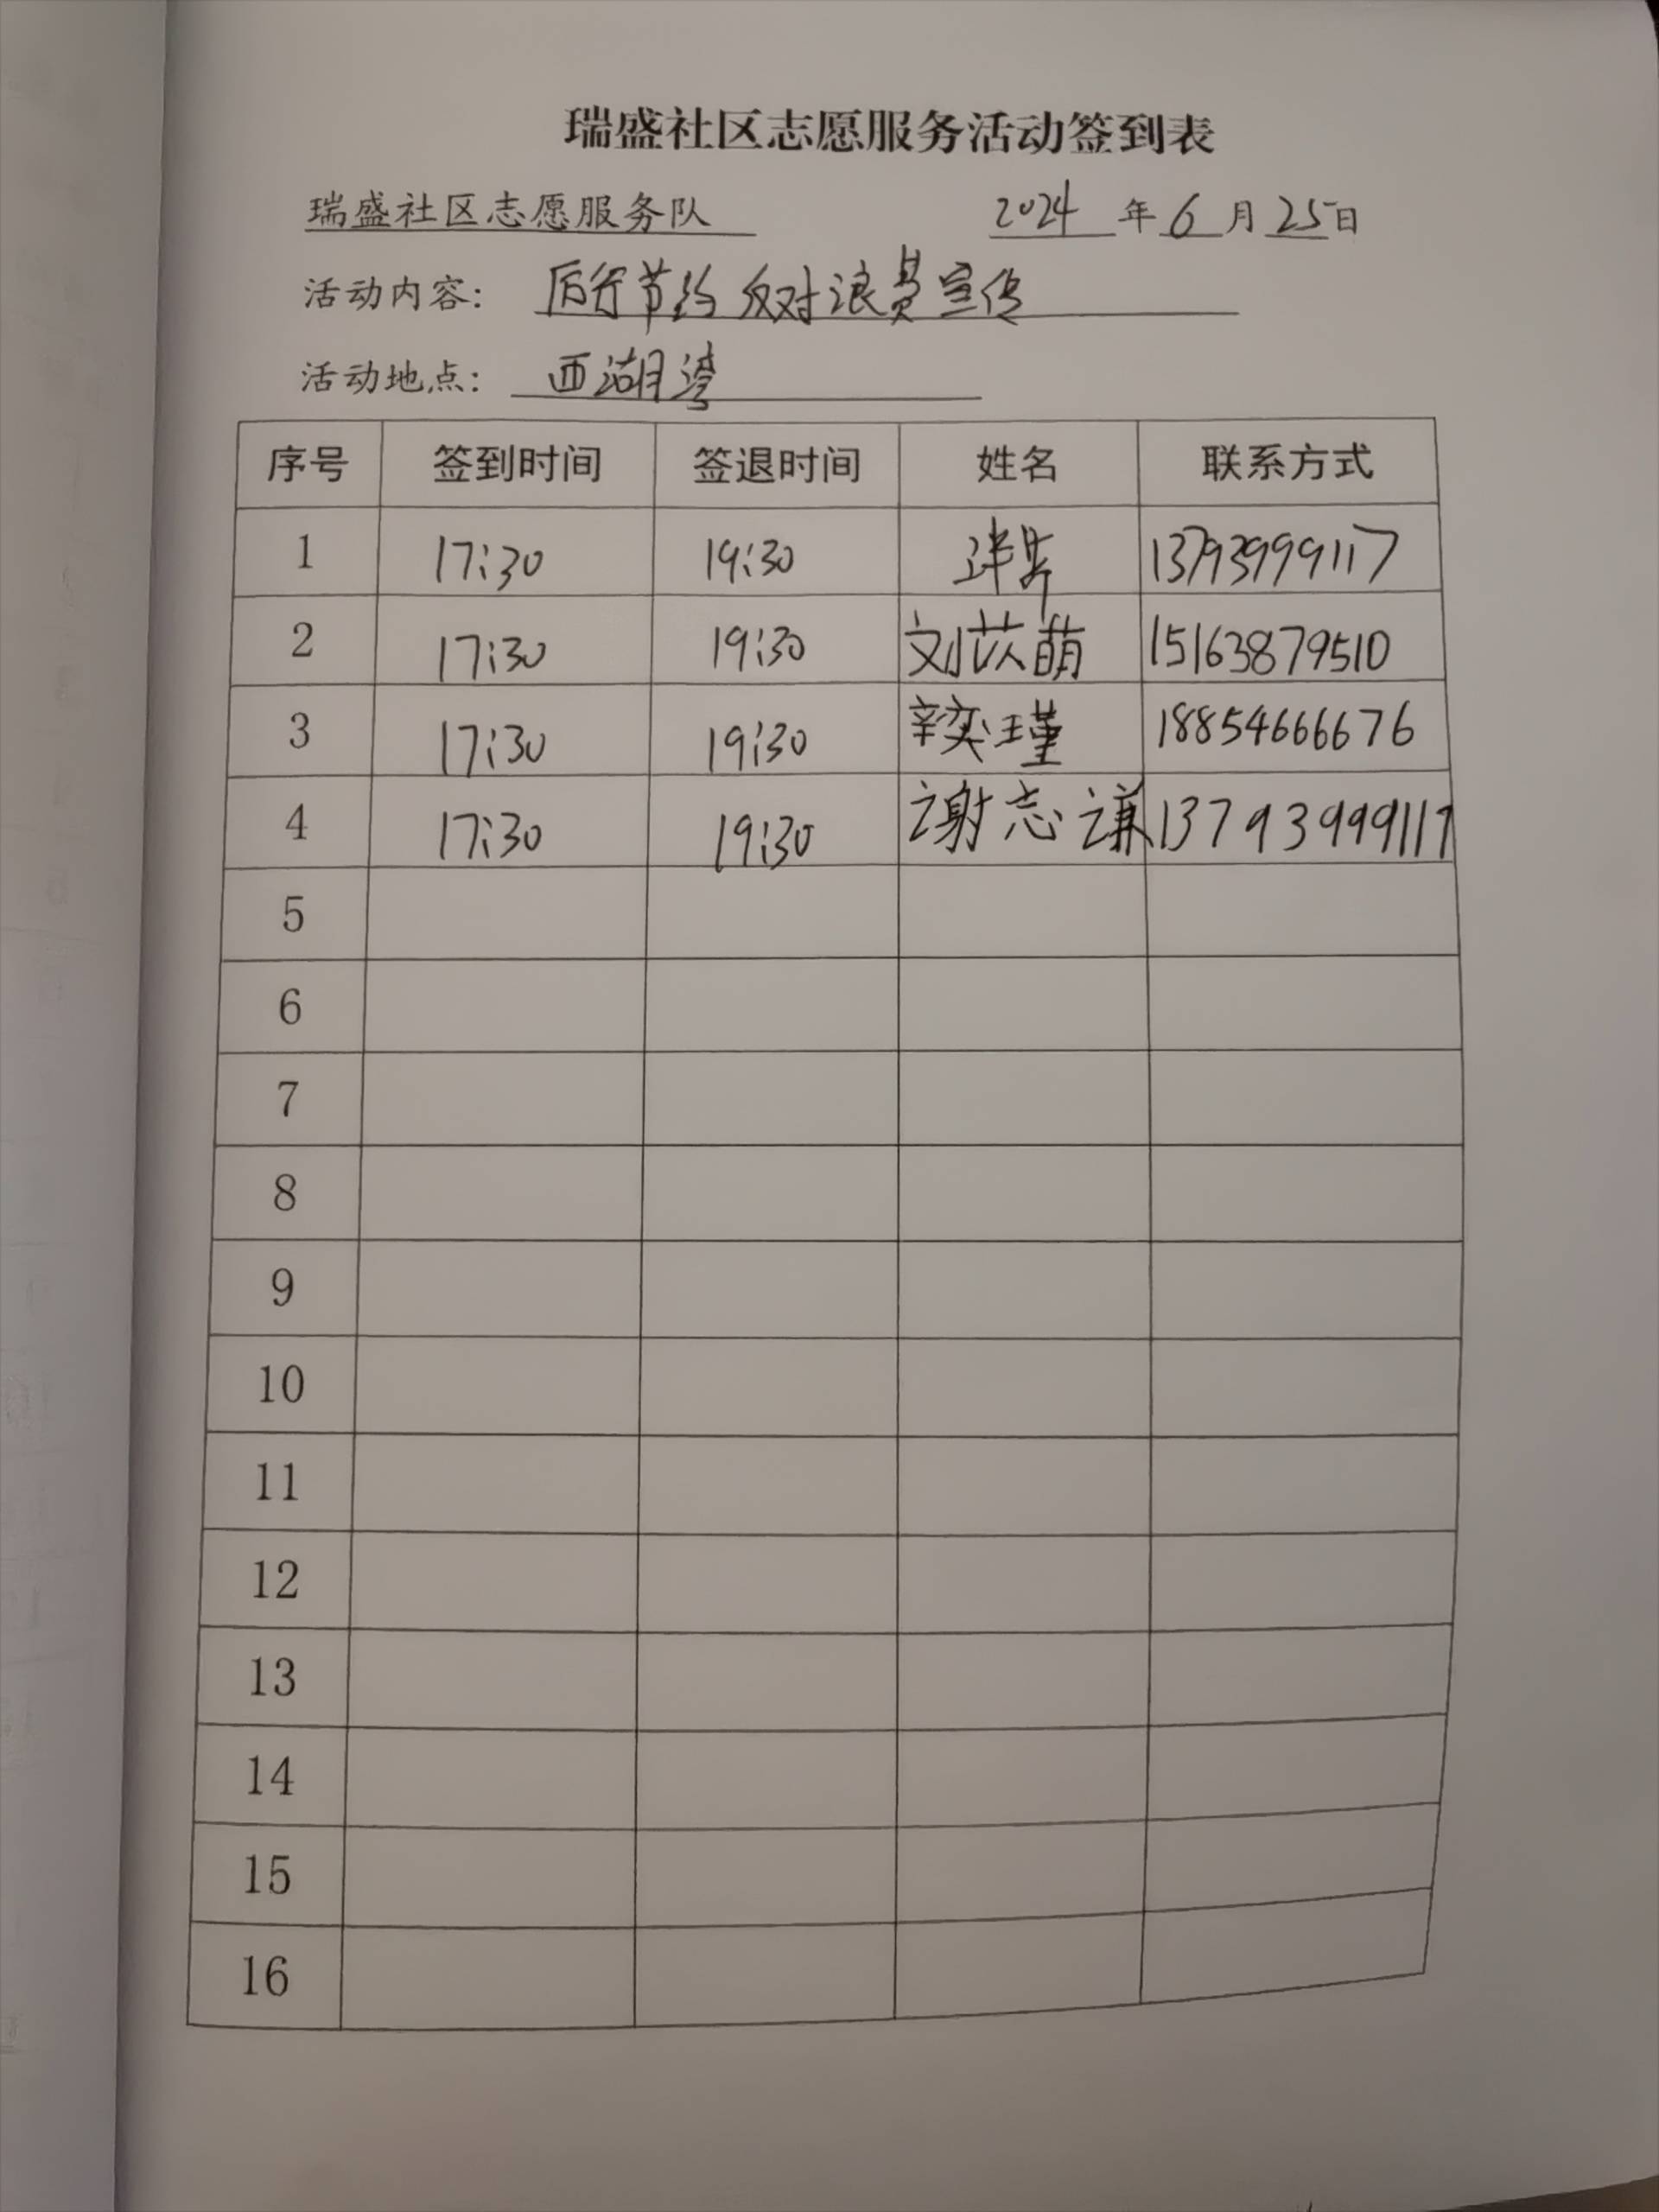 瑞盛社区志愿服务活动签到表
瑞盛社区志愿服务队 2024 年 6 月 25 日
活动内容: 厉行节约 反对浪费宣传
活动地点: 西湖月湾
序号 签到时间 签退时间 姓名 联系方式
1 17:30 19:30 13793999117
2 17:30 19:30 刘苡萌 15163879510
3 17:30 19:30 辛奕瑾 18854666676
4 17:30 19:30 谢志谦 13793999117
5
6
7
8
9
10
11
12
13
14
15
16